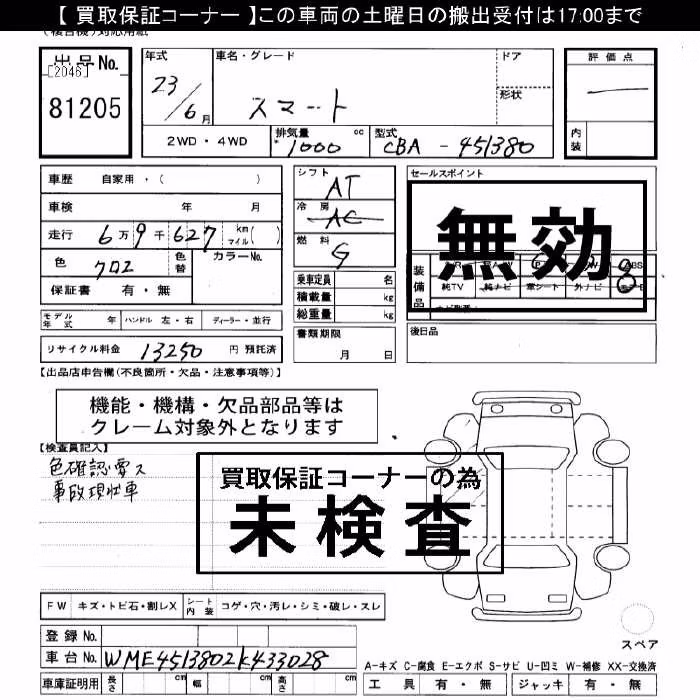 【 買取保証コーナー 】この車両の土曜日の搬出受付は17:00まで
出品No.
[2046]
81205
年式
23/6月
車名・グレード
スマート
ドア
形状
評価点
内装
2WD・4WD
排気量 1000 cc
型式 CBA - 451380
車歴 自家用・( )
車検 年 月
走行 6万9千627 km マイル( )
色 クロ2
色替
カラーNo.
保証書 有・無
シフト AT
冷房 AC
燃料 G
乗車定員 名
積載量 kg
総重量 kg
セールスポイント
無効
装備品
純TV 純ナビ 革シート 外ナビ
モデル年式 年 ハンドル 左・右 ディーラー・並行
書類期限
月 日
後日品
リサイクル料金 13250 円 預託済
【出品店申告欄(不良箇所・欠品・注意事項等)】
機能・機構・欠品部品等は
クレーム対象外となります
【検査員記入】
色確認要ス
事故現状車
買取保証コーナーの為
未検査
FW キズ・トビ石・割レX シート内装 コゲ・穴・汚レ・シミ・破レ・スレ
スペア
登録No.
車台No. WME4513802K433028
A-キズ C-腐食 E-エクボ S-サビ U-凹ミ W-補修 XX-交換済
車庫証明用 長さ cm 幅 cm 高さ cm
工具 有・無 ジャッキ 有・無